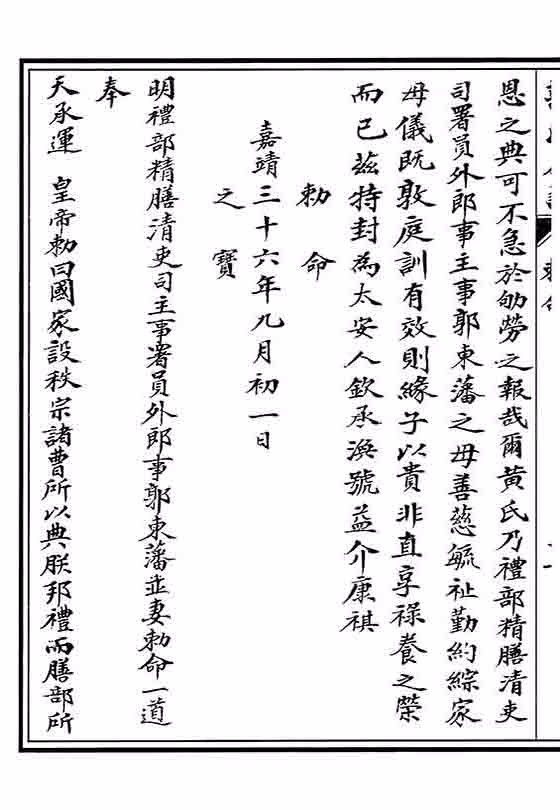 恩之典可不急於劬勞之報哉爾黃氏乃禮部精膳清吏
司署員外郎事主事郭東藩之母善慈毓祉勤約綜家
母儀既敦庭訓有效則緣子以貴非直享祿養之榮
而已茲特封為太安人欽承渙號益介康祺
勅命
嘉靖三十六年九月初一日
之寶
明禮部精膳清吏司主事署員外郎事郭東藩並妻勅命一道
奉
天承運 皇帝勅曰國家設秩宗諸曹所以典朕邦禮而膳部所